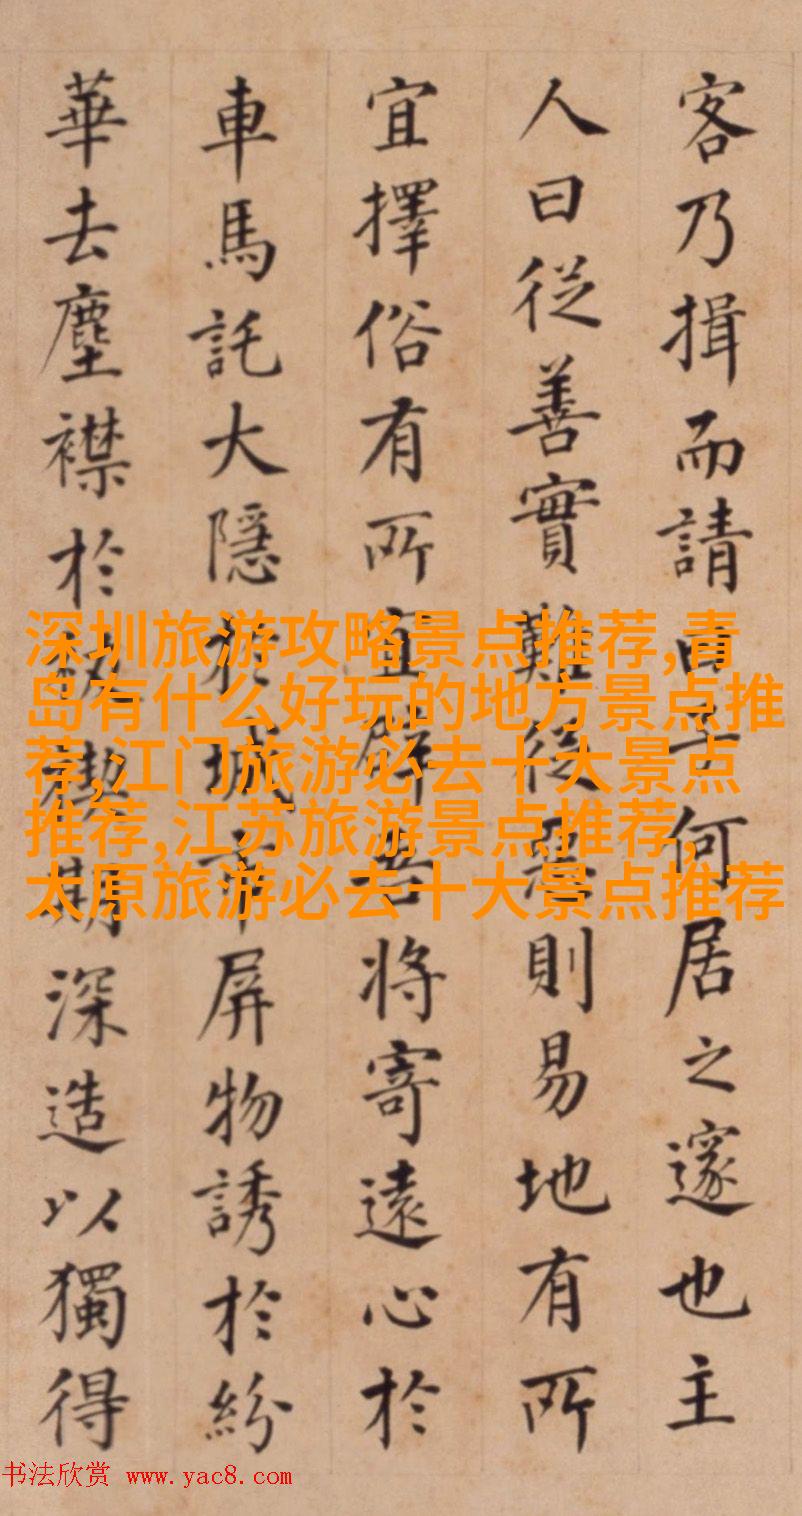 客乃揖而請曰子何居之邃也主
人曰從善實難從惡則易地有所
宜擇俗有所宜將寄遠心於
車馬託大隱於城市屏物誘於紛
華去塵襟於期深造以獨得
深圳旅游攻略景点推荐,青
岛有什么好玩的地方景点推
荐,江门旅游必去十大景点
推荐,江苏旅游景点推荐,
太原旅游必去十大景点推荐
书法欣赏 www.yac8.com